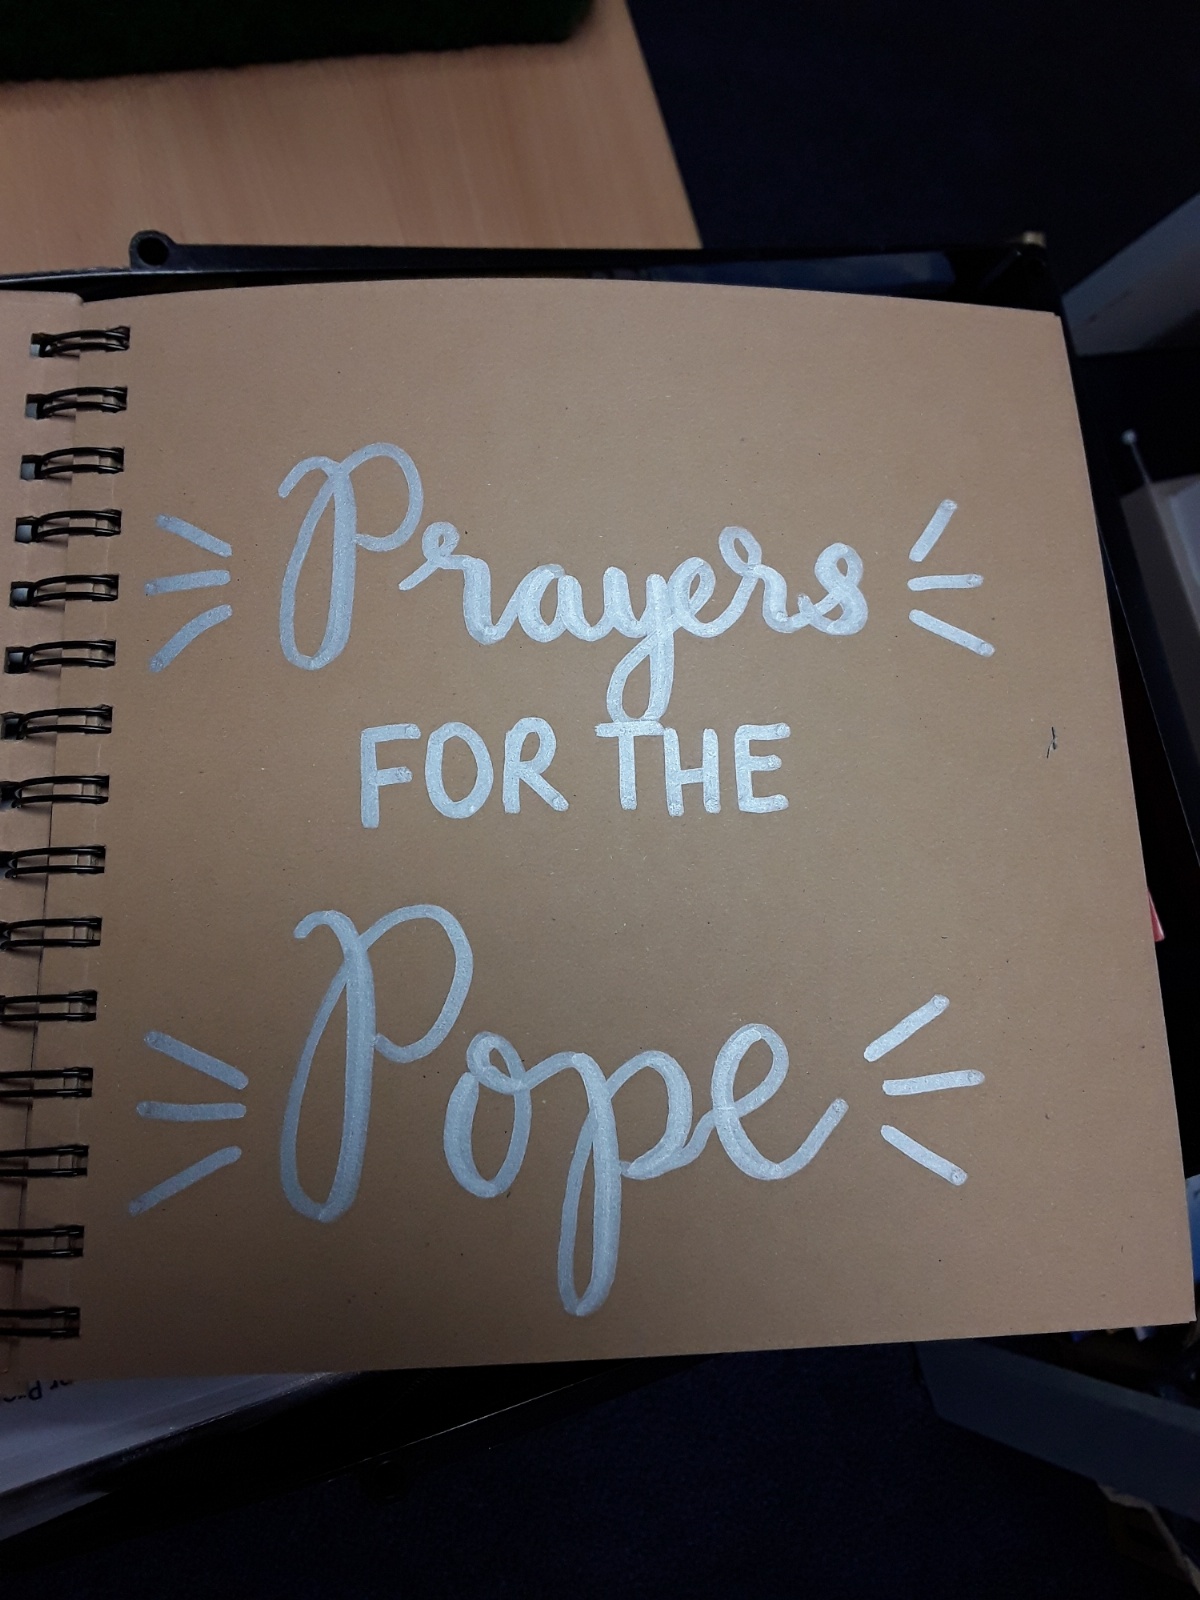 Prayers
FOR THE
Pope